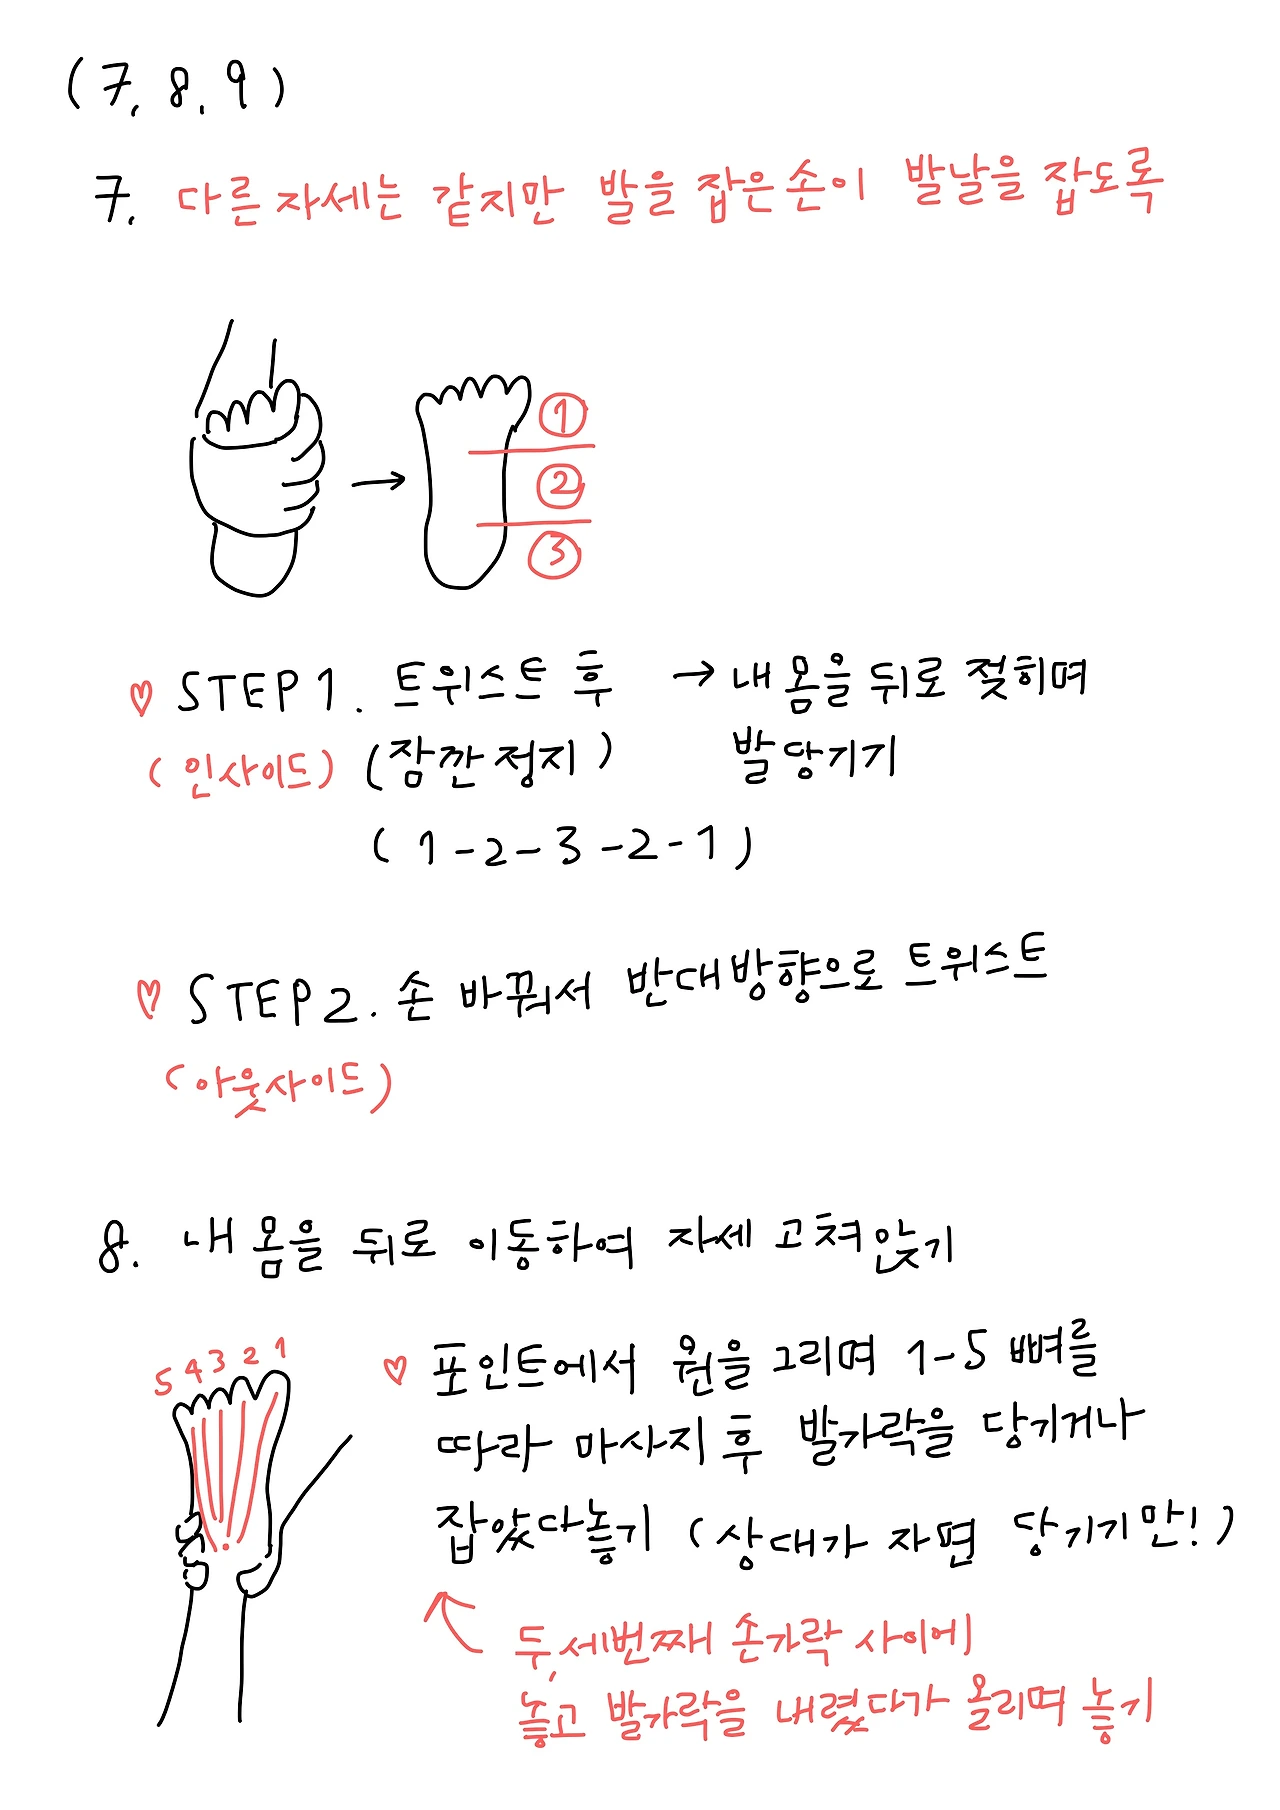 (7. 8. 9)
7. 다른 자세는 같지만 발을 잡은 손이 발날을 잡도록
①
②
③
♡ STEP 1. 트위스트 후 → 내 몸을 뒤로 젖히며
(인사이드) (잠깐 정지) 발 당기기
(1-2-3-2-1)
♡ STEP 2. 손 바꿔서 반대방향으로 트위스트
(아웃사이드)
8. 내 몸을 뒤로 이동하여 자세 고쳐앉기
5 4 3 2 1
♡ 포인트에서 원을 그리며 1-5 뼈를
따라 마사지 후 발가락을 당기거나
잡았다놓기 (상대가 자면 당기기만!)
두,세번째 손가락 사이에
놓고 발가락을 내렸다가 올리며 놓기